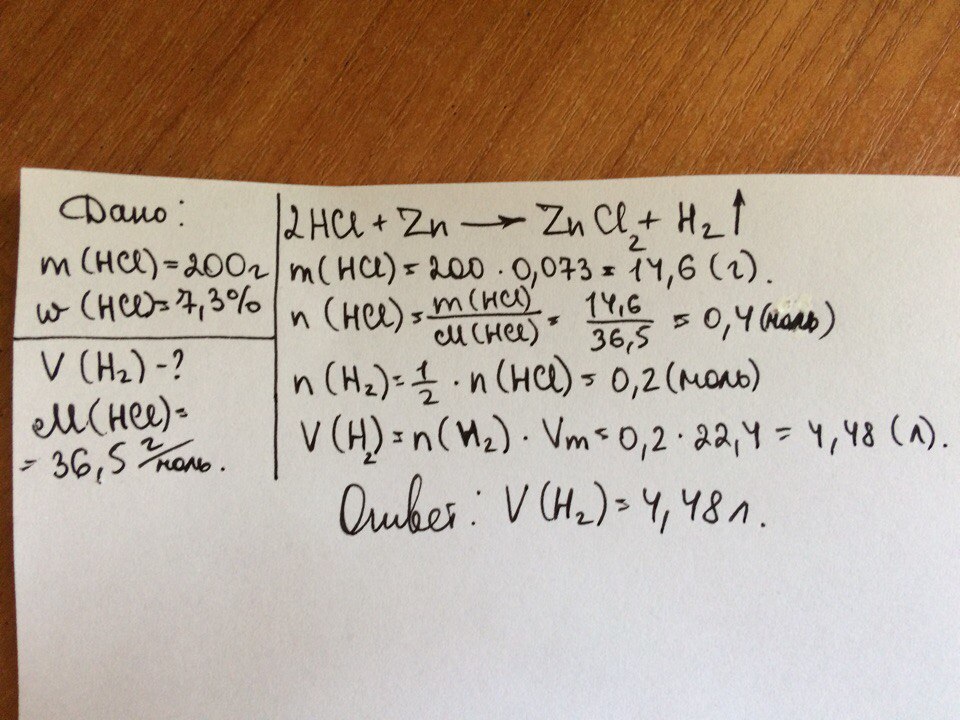 Дано:
m(HCl)=200г
w(HCl)=7,3%
V(H₂)-?
M(HCl)=
=36,5 г/моль.
2HCl + Zn → ZnCl₂ + H₂↑
m(HCl) = 200 · 0,073 = 14,6 (г).
n(HCl) = m(HCl)/M(HCl) = 14,6/36,5 = 0,4 (моль)
n(H₂) = 1/2 · n(HCl) = 0,2 (моль)
V(H₂) = n(H₂) · Vm = 0,2 · 22,4 = 4,48 (л).
Ответ: V(H₂) = 4,48 л.